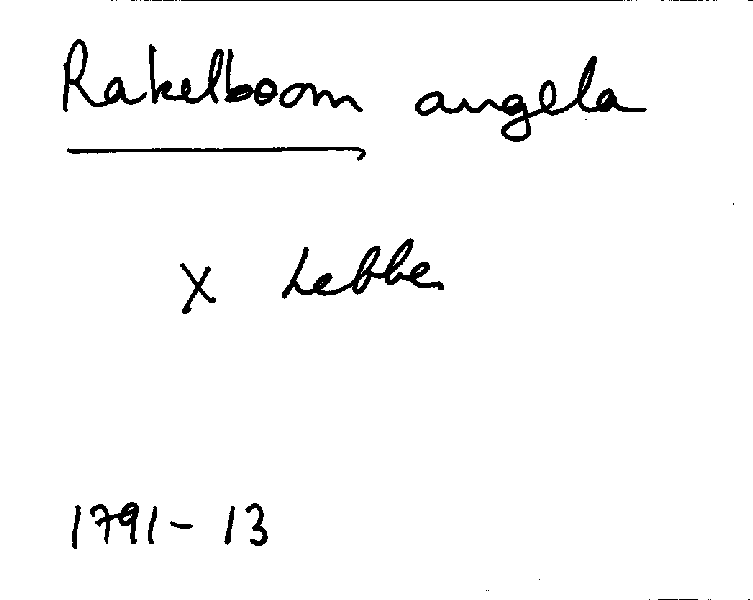 Rakelboom angela
x Lebbe
1791-13